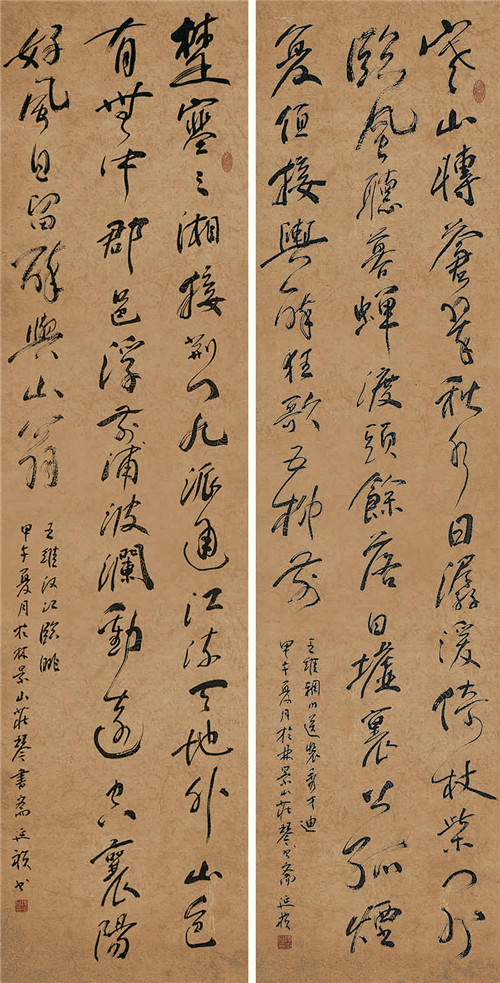 寒山轉蒼翠秋水日潺湲倚杖柴門外
臨風聽暮蟬渡頭餘落日墟裏上孤煙
复值接輿醉狂歌五柳前
王維輞川送裴秀才迪
甲午夏月於林景山莊琴書齋延
楚塞三湘接荆门九派通江流天地外山色
有無中郡邑浮前浦波瀾動遠空襄陽
好風日留醉與山翁
王維汉江臨眺
甲午夏月於林景山莊琴書齋延